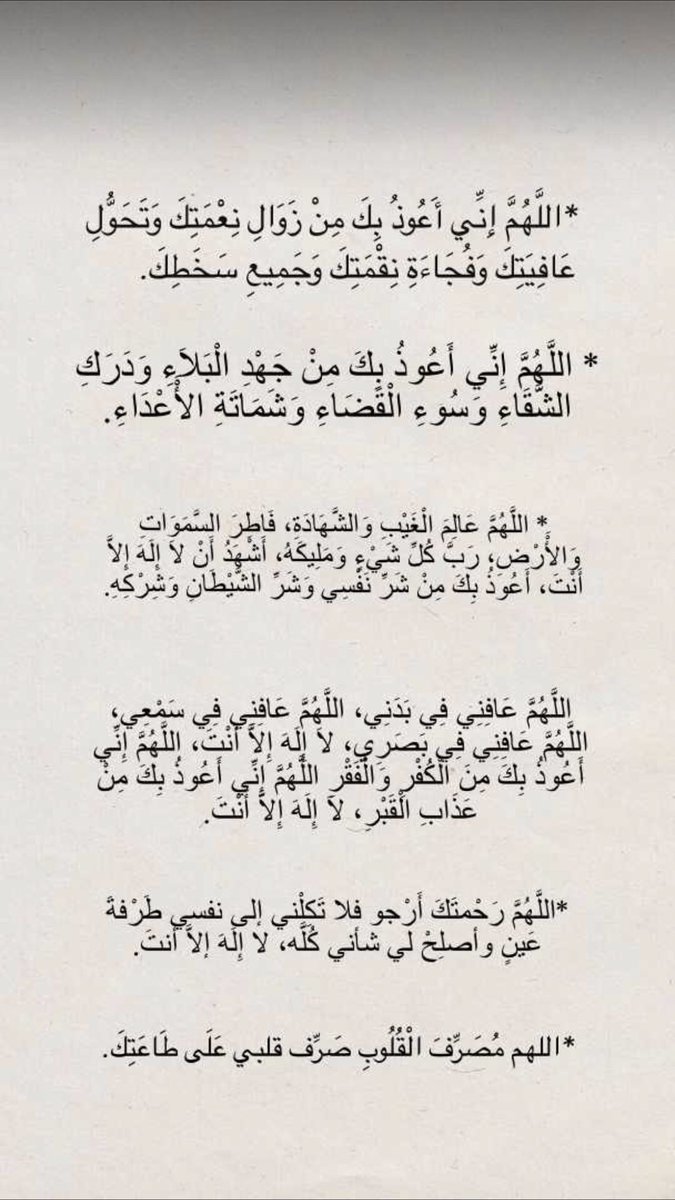 *اللَّهُمَّ إِنِّي أَعُوذُ بِكَ مِنْ زَوَالِ نِعْمَتِكَ وَتَحَوُّلِ
عَافِيَتِكَ وَفُجَاءَةِ نِقْمَتِكَ وَجَمِيعِ سَخَطِكَ.
* اللَّهُمَّ إِنِّي أَعُوذُ بِكَ مِنْ جَهْدِ الْبَلاَءِ وَدَرَكِ
الشَّقَاءِ وَسُوءِ الْقَضَاءِ وَشَمَاتَةِ الأَعْدَاءِ.
* اللَّهُمَّ عَالِمَ الْغَيْبِ وَالشَّهَادَةِ، فَاطِرَ السَّمَوَاتِ
وَالأَرْضِ، رَبَّ كُلِّ شَيْءٍ وَمَلِيكَهُ، أَشْهَدُ أَنْ لاَ إِلَهَ إِلاَّ
أَنْتَ، أَعُوذُ بِكَ مِنْ شَرِّ نَفْسِي وَشَرِّ الشَّيْطَانِ وَشِرْكِهِ.
اللَّهُمَّ عَافِنِي فِي بَدَنِي، اللَّهُمَّ عَافِنِي فِي سَمْعِي،
اللَّهُمَّ عَافِنِي فِي بَصَرِي، لاَ إِلَهَ إِلاَّ أَنْتَ، اللَّهُمَّ إِنِّي
أَعُوذُ بِكَ مِنَ الْكُفْرِ وَالْفَقْرِ اللَّهُمَّ إِنِّي أَعُوذُ بِكَ مِنْ
عَذَابِ الْقَبْرِ، لاَ إِلَهَ إِلاَّ أَنْتَ.
*اللَّهُمَّ رَحْمتَكَ أَرْجو فلا تَكِلْني إلى نفسي طَرْفةَ
عَينٍ وأصلِحْ لي شأني كُلَّه، لا إِلَهَ إلاَّ أنتَ.
*اللهم مُصَرِّفَ الْقُلُوبِ صَرِّف قلبي عَلَى طَاعَتِكَ.